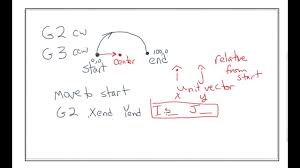 G2 cw
G3 ccw
0,0
start
center
10,0
end
relative
from
start
i j
unit vector
x y
move to start
G2 Xend Yend I5 J